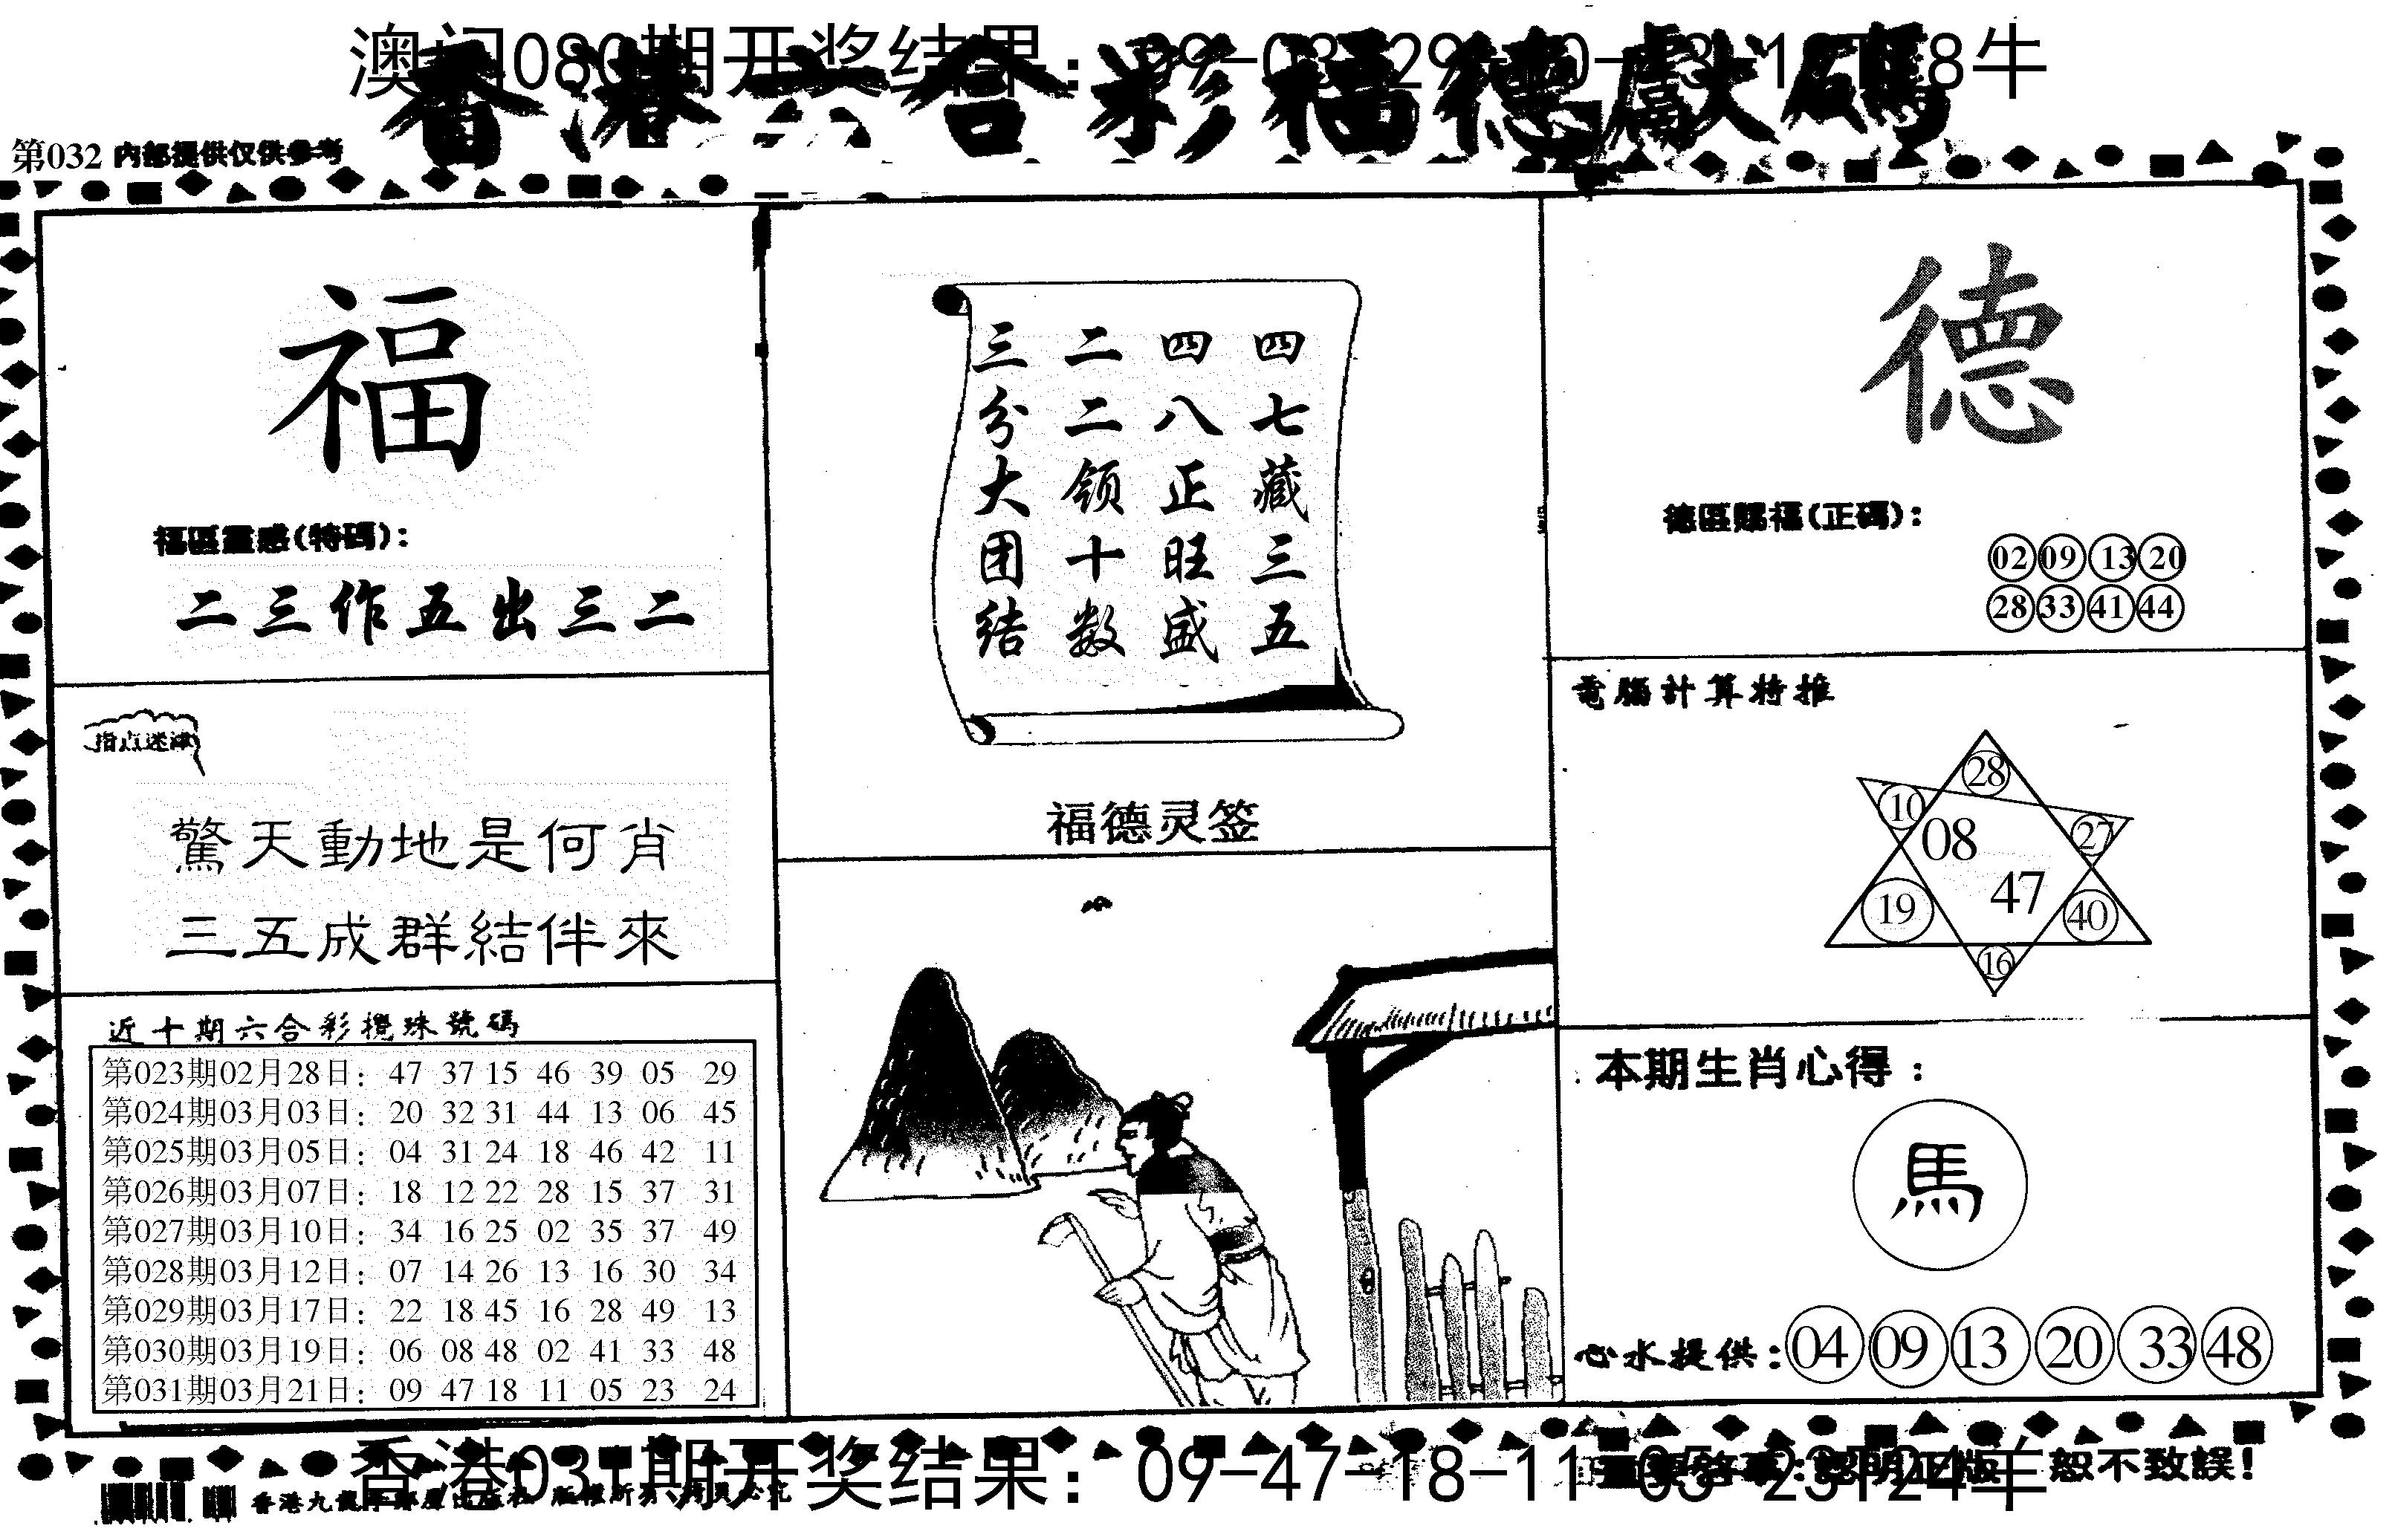 香港六合彩福德獻碼
第032 内部提供仅供参考
福
福區靈感(特碼):
二三作五出三二
指点迷津
驚天動地是何肖
三五成群結伴來
近十期六合彩攪珠號碼
第023期02月28日: 47 37 15 46 39 05 29
第024期03月03日: 20 32 31 44 13 06 45
第025期03月05日: 04 31 24 18 46 42 11
第026期03月07日: 18 12 22 28 15 37 31
第027期03月10日: 34 16 25 02 35 37 49
第028期03月12日: 07 14 26 13 16 30 34
第029期03月17日: 22 18 45 16 28 49 13
第030期03月19日: 06 08 48 02 41 33 48
第031期03月21日: 09 47 18 11 05 23 24
四七藏三五
四八正旺盛
二二领十数
三分大团结
福德灵签
德
德區賜福(正碼):
02 09 13 20
28 33 41 44
電腦計算特推
28
10 27
08
47
19 40
16
本期生肖心得:
馬
心水提供: 04 09 13 20 33 48
香港031期开奖结果: 09-47-18-11-05-23T24羊
恕不致誤!